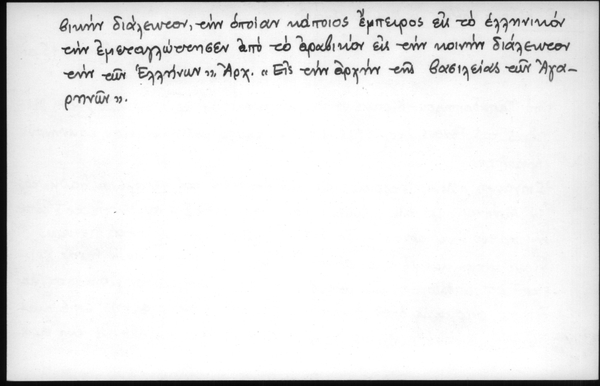 βικὴν διάλεκτον, τὴν ὁποίαν κάποιος ἔμπειρος εἰς τὸ ἑλληνικὸν
τὴν ἐμεταγλώττησεν ἀπὸ τὸ ἀραβικὸν εἰς τὴν κοινὴν διάλεκτον
τὴν τῶν Ἑλλήνων». Ἀρχ. «Εἰς τὴν ἀρχὴν τῆς βασιλείας τῶν Ἀγα-
ρηνῶν».